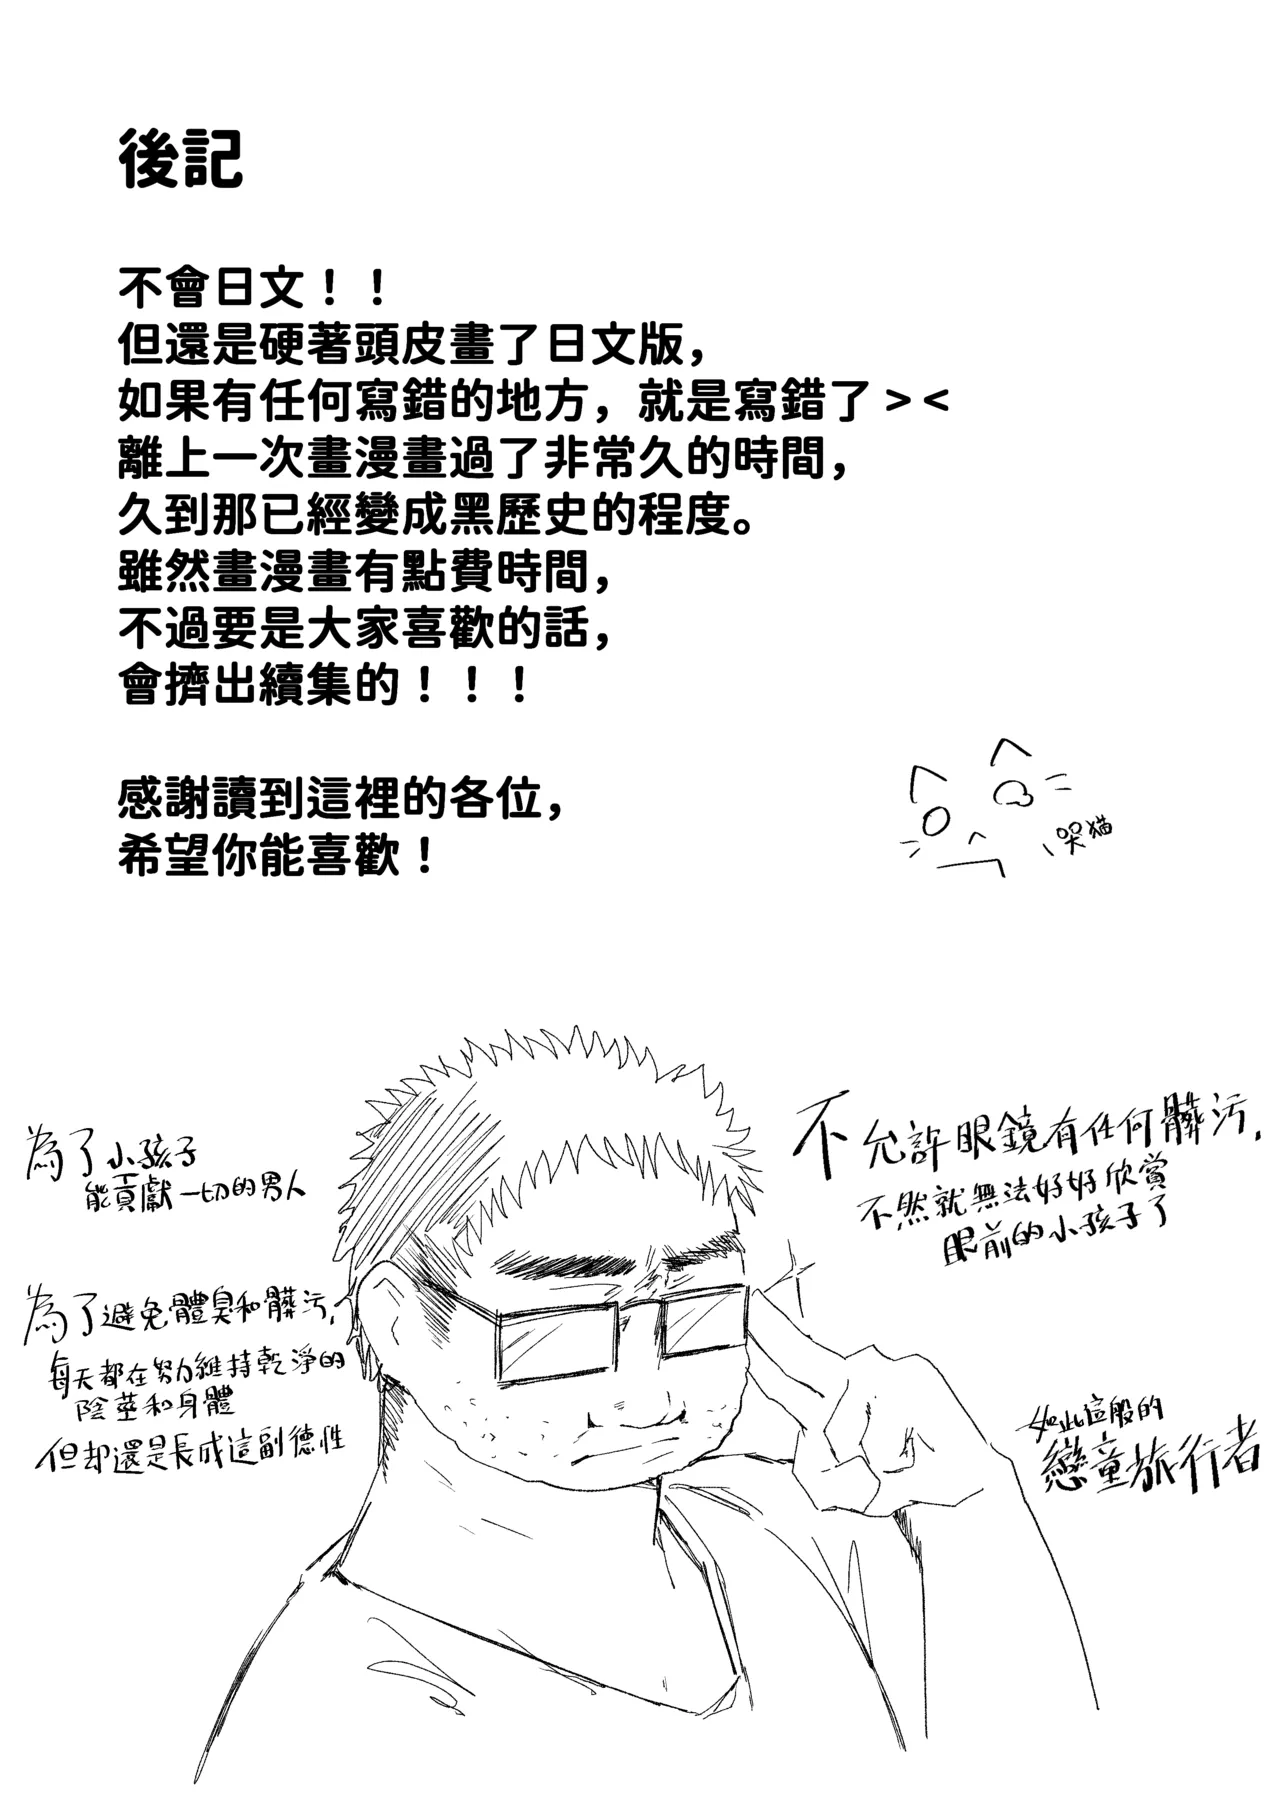 後記
不會日文！！
但還是硬著頭皮畫了日文版，
如果有任何寫錯的地方，就是寫錯了＞＜
離上一次畫漫畫過了非常久的時間，
久到那已經變成黑歷史的程度。
雖然畫漫畫有點費時間，
不過要是大家喜歡的話，
會擠出續集的！！！
感謝讀到這裡的各位，
希望你能喜歡！
哭貓
為了小孩子
能貢獻一切的男人
不允許眼鏡有任何髒污，
不然就無法好好欣賞
眼前的小孩子了
為了避免體臭和髒污，
每天都在努力維持乾淨的
陰莖和身體
但却還是長成這副德性
如此這般的
戀童旅行者